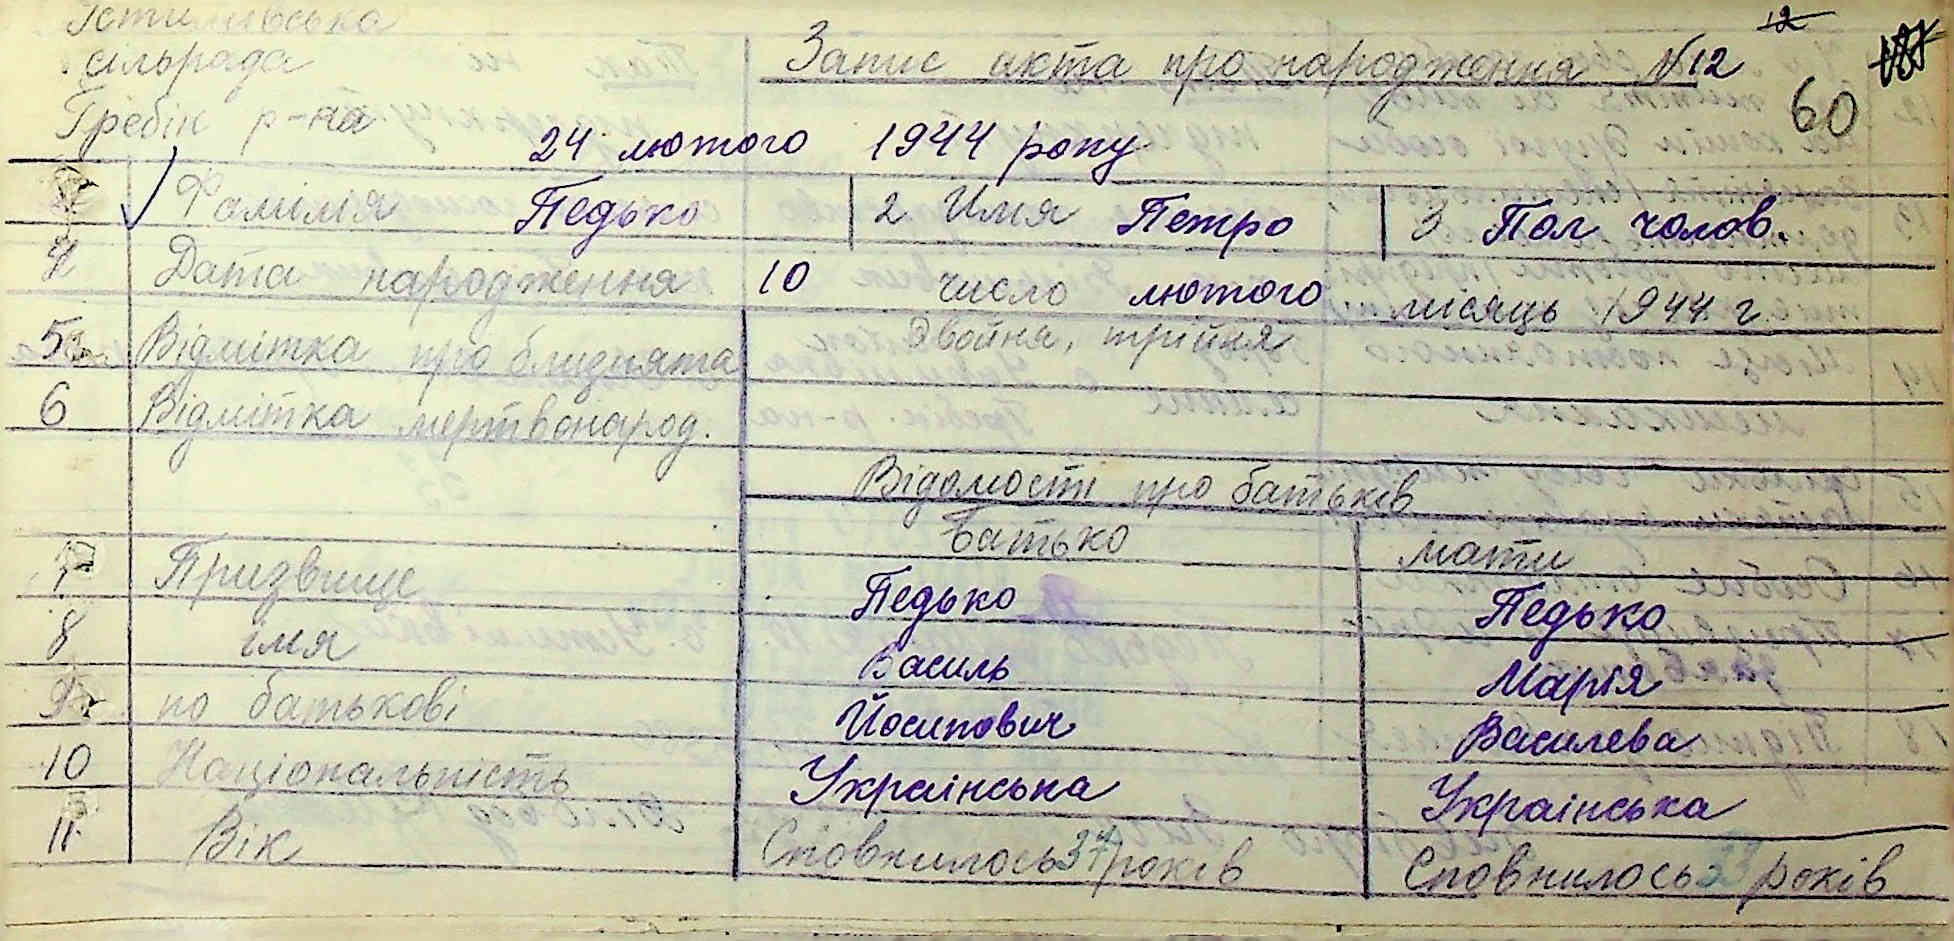 Устимівська
сільрада
Гребін р-на
Запис акта про народження №12
12
60
24 лютого 1944 року
Фамілія Педько 2 Имя Петро 3 Пол чолов.
4 Дата народження 10 число лютого місяць 1944 г.
5 Відмітка про близнята Двойня, трійня
6 Відмітка мертвонарод.
Відомості про батьків
Батько мати
7 Призвище Педько Педько
8 імя Василь Марія
9 по батькові Йосипович Василева
10 Національність Українська Українська
11 Вік Сповнилось 37 років Сповнилось 33 років